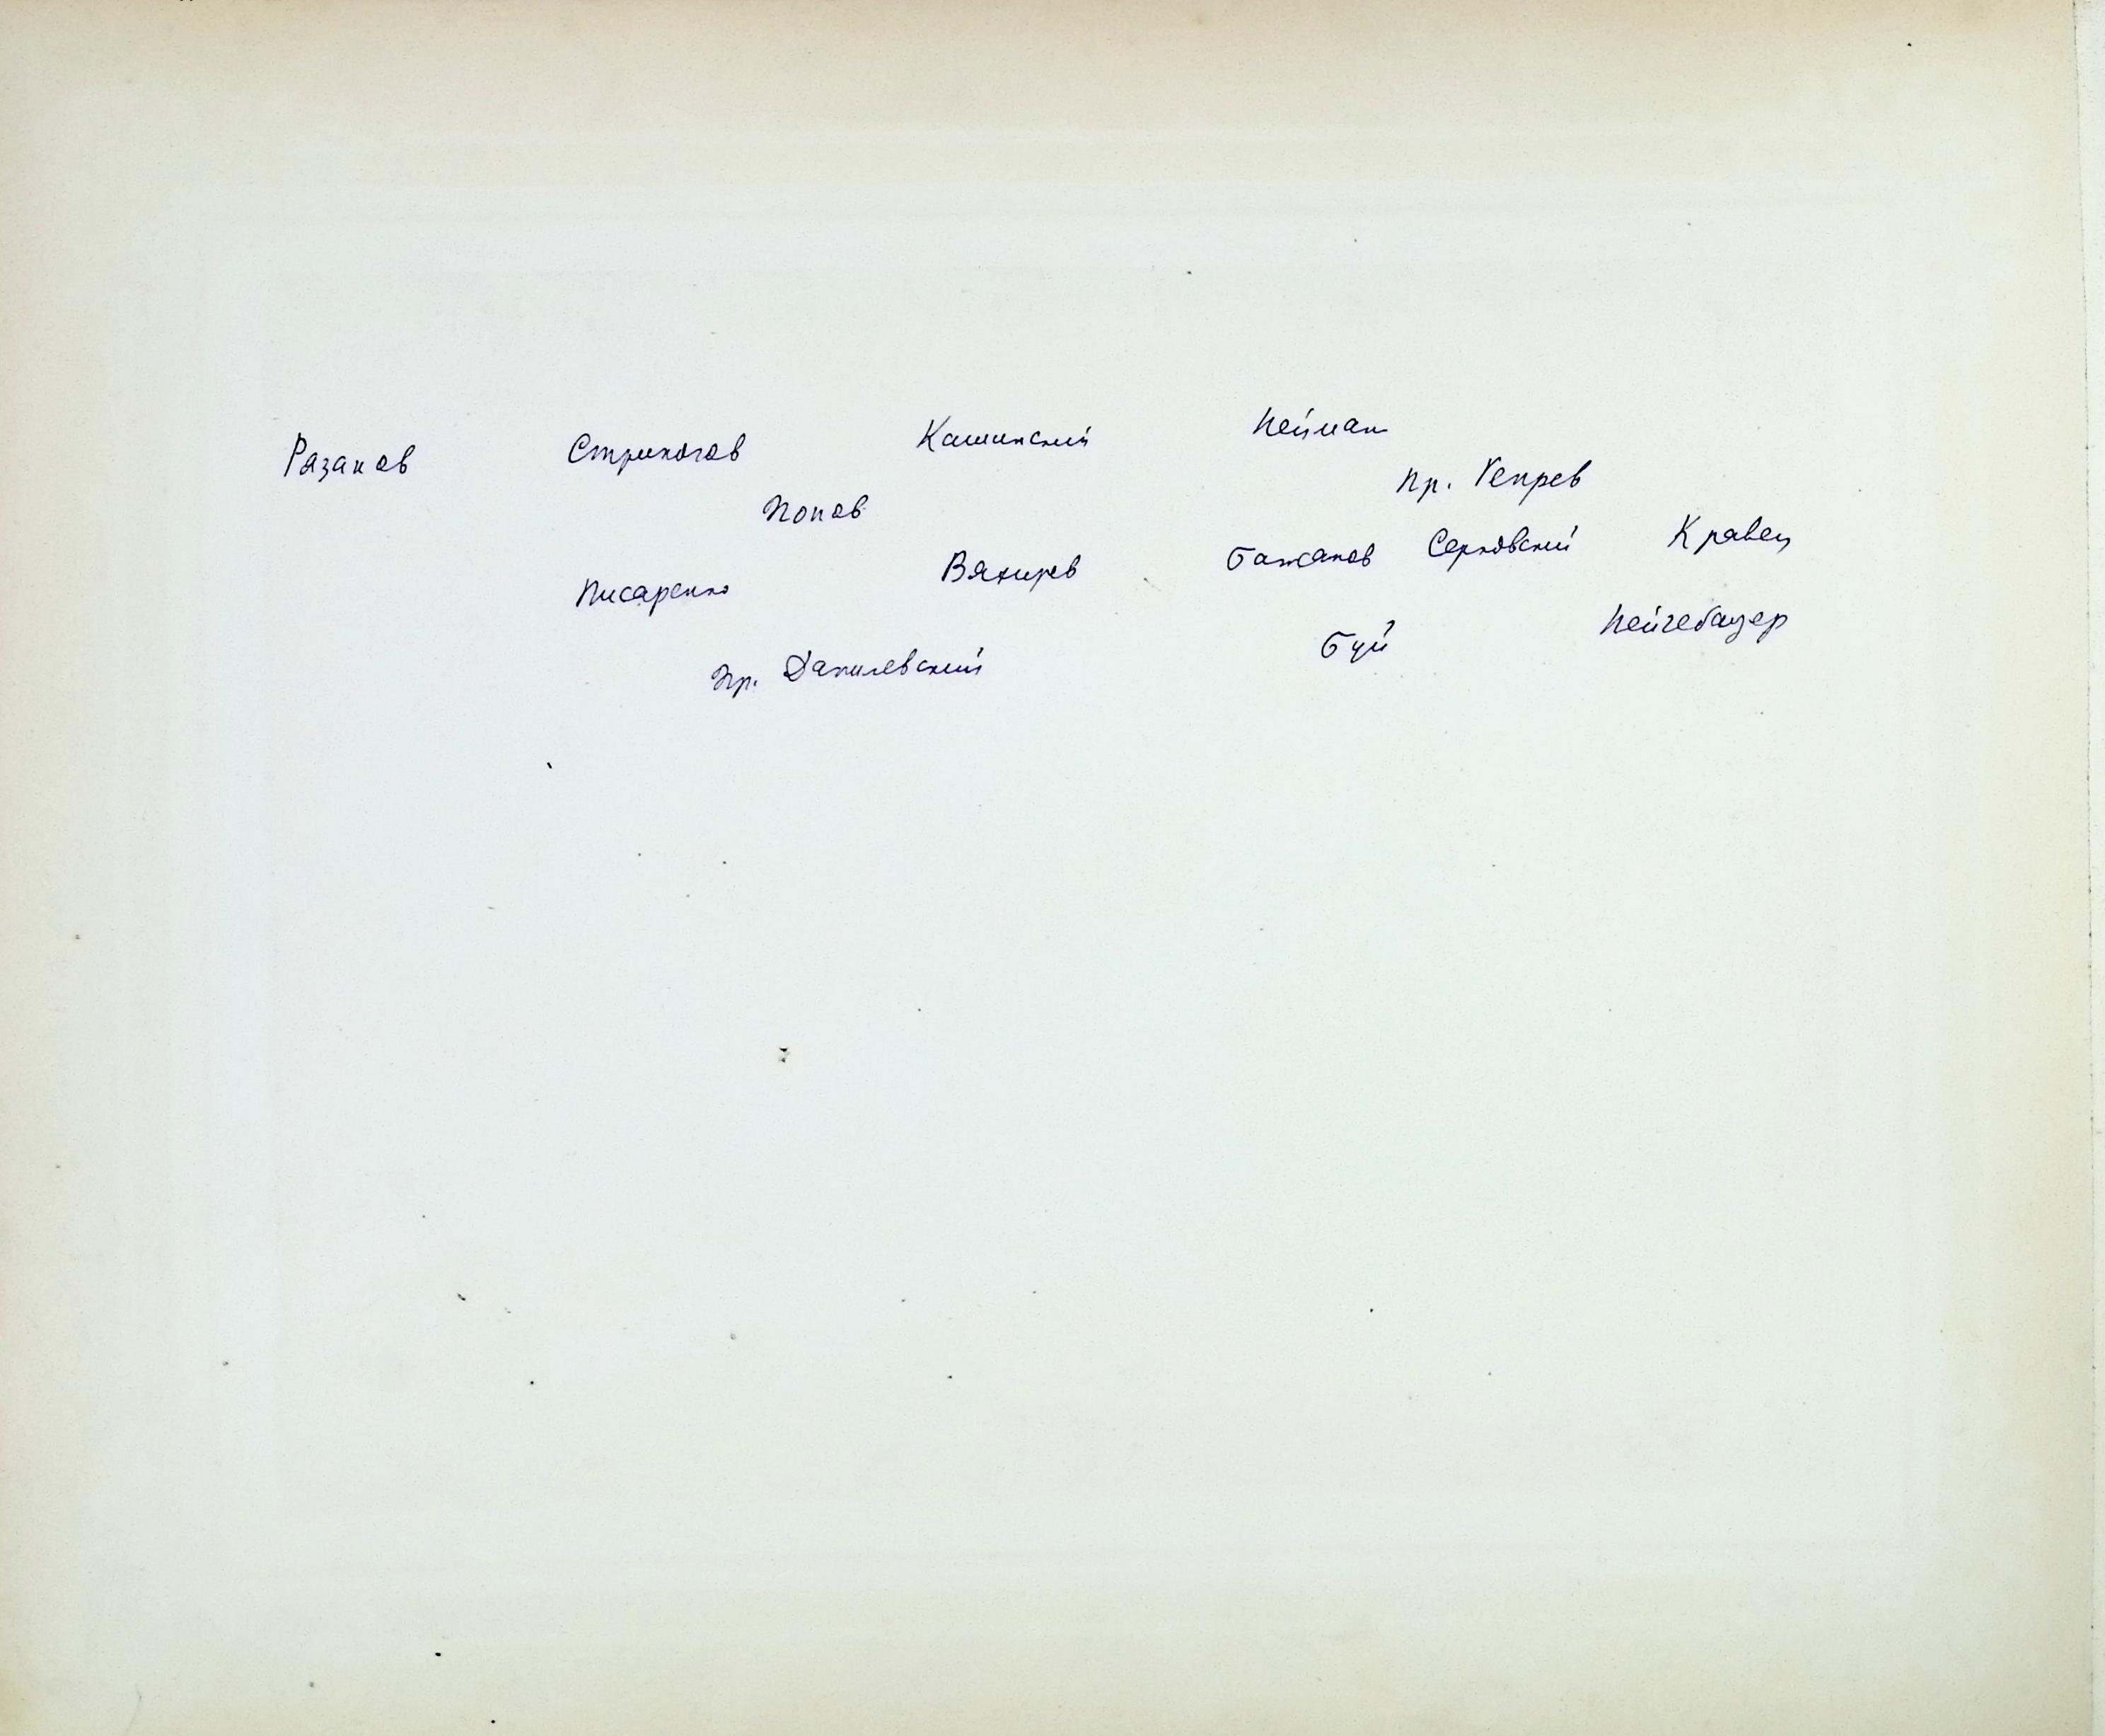 Разанов Стриногов Кашинский Нейман
Попов пр. Репрев
Писаренко Вяхирев Бажанов Серковский Кравец
пр. Данилевский Буй Нейгебауер